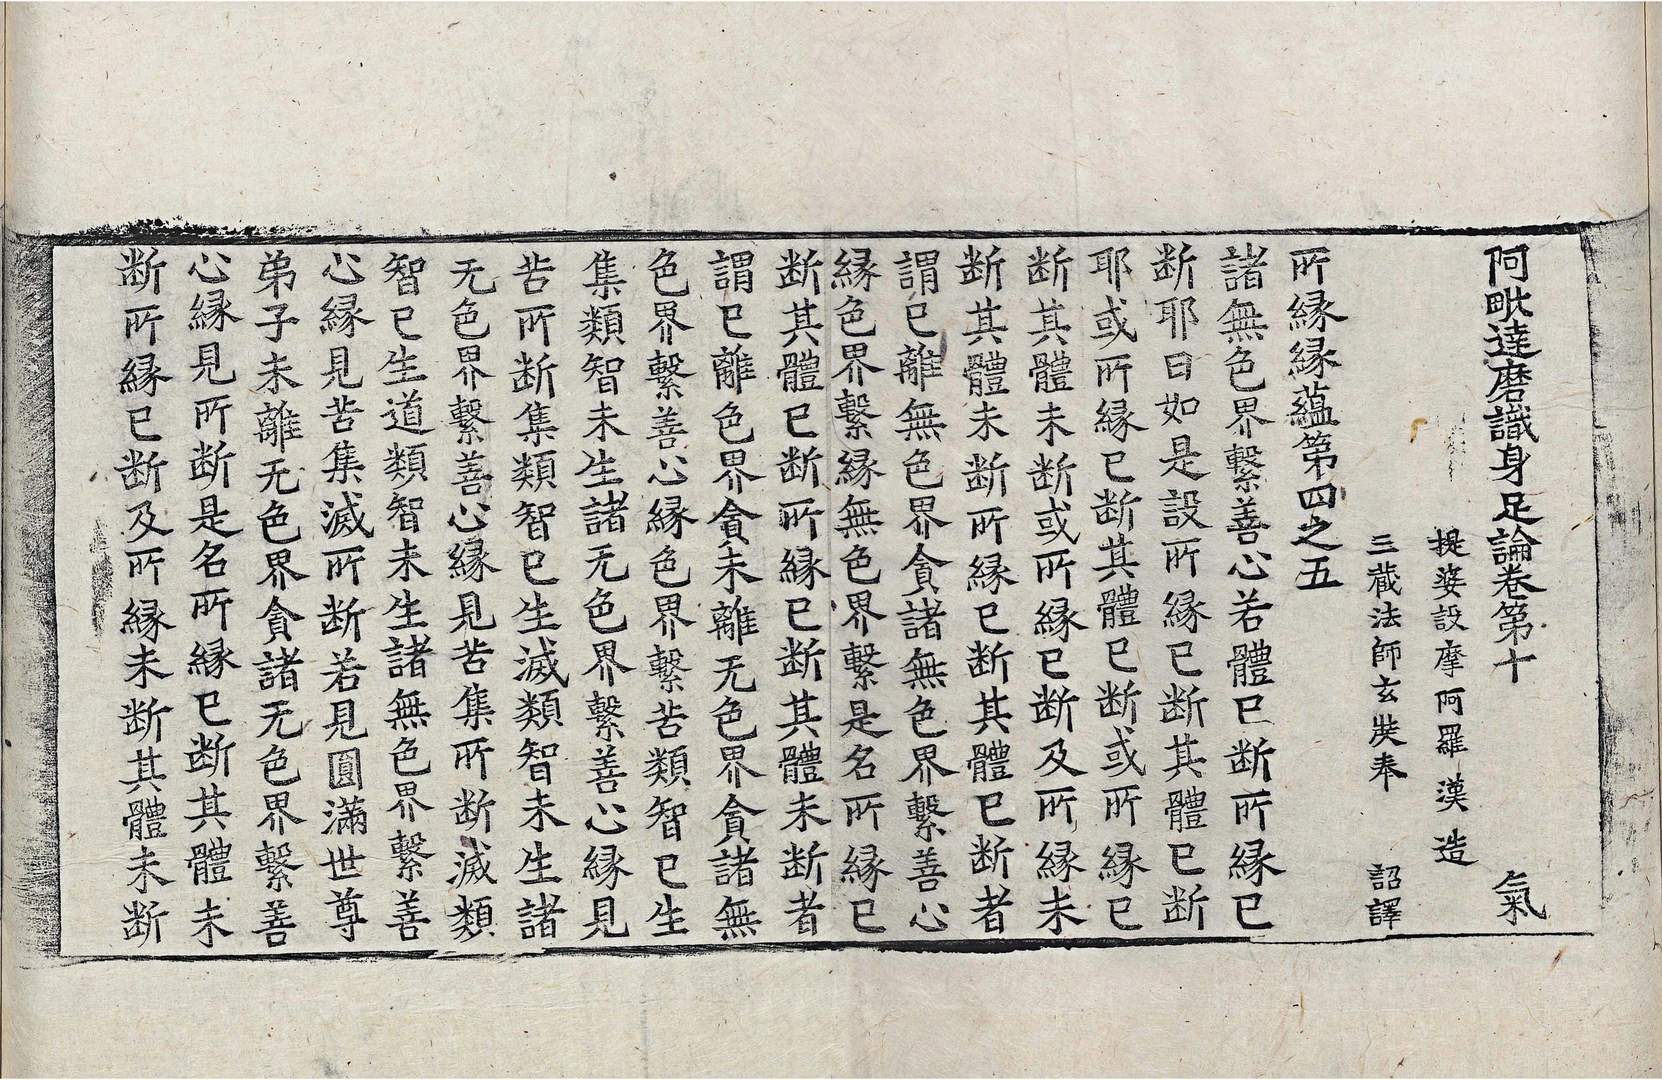 阿毗達磨識身足論卷第十 氣
提婆設摩阿羅漢 造
三藏法師玄奘奉 詔譯
所緣緣蘊第四之五
諸無色界繫善心若體已断所緣已
断耶曰如是設所緣已断其體已断
耶或所緣已断其體已断或所緣已
断其體未断或所緣已断及所緣未
断其體未断所緣已断其體已断者
謂已離無色界貪諸無色界繫善心
緣色界繫緣無色界繫是名所緣已
断其體已断所緣已断其體未断者
謂已離色界貪未離无色界貪諸無
色界繫善心緣色界繫苦類智已生
集類智未生諸无色界繫善心緣見
苦所断集類智已生滅類智未生諸
无色界繫善心緣見苦集所断滅類
智已生道類智未生諸無色界繫善
心緣見苦集滅所断若見圓滿世尊
弟子未離无色界貪諸无色界繫善
心緣見所断是名所緣已断其體未
断所緣已断及所緣未断其體未断